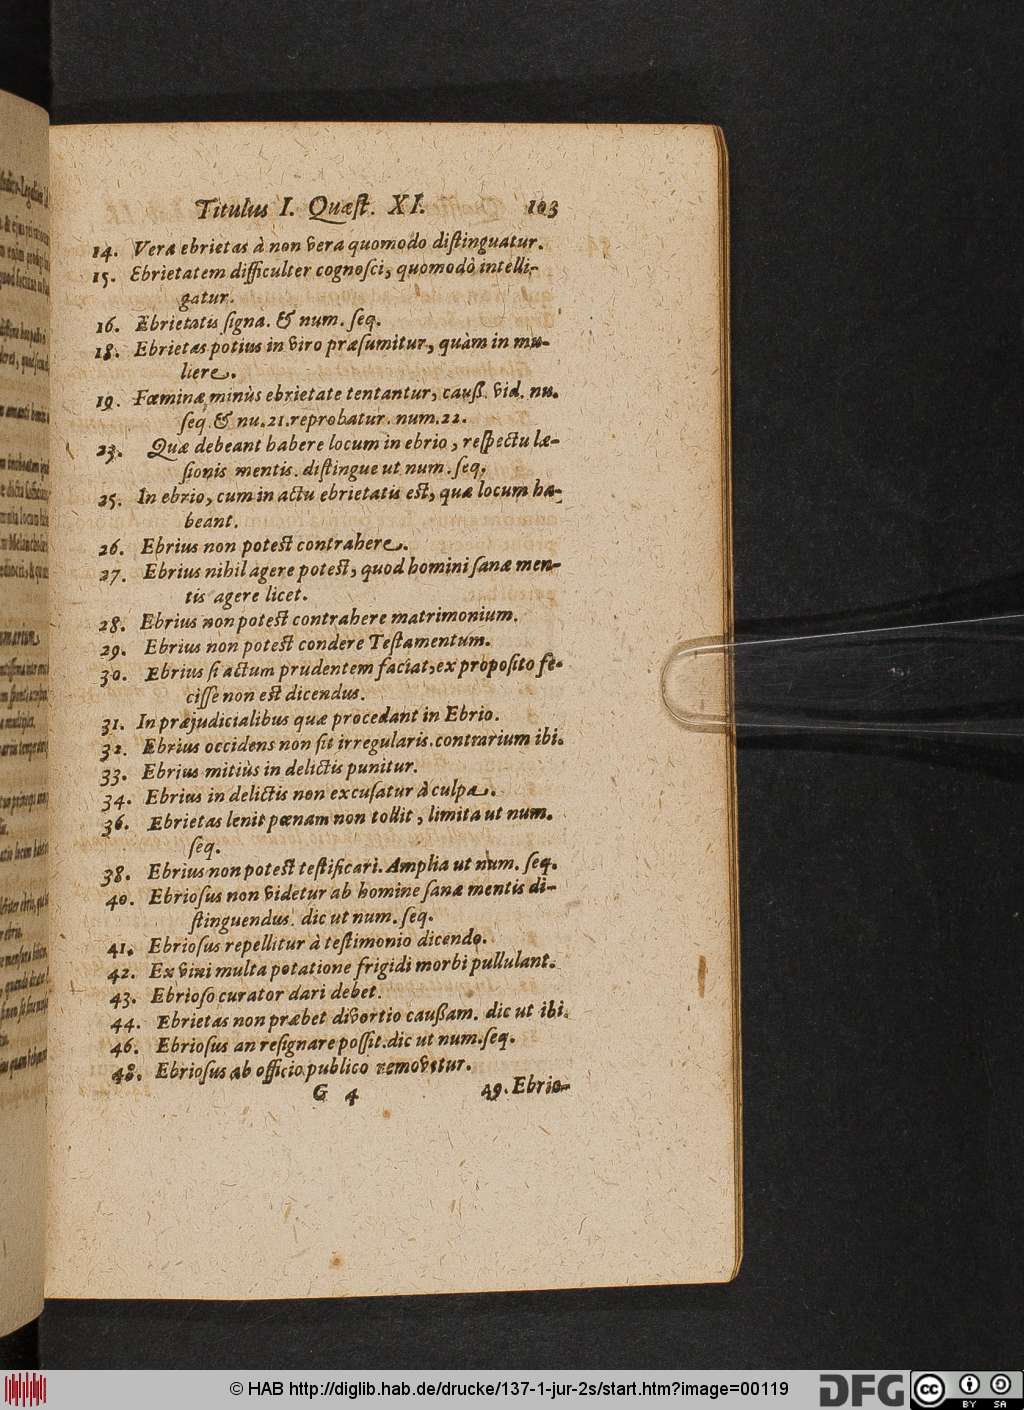 Titulus I. Quæst. XI. 103
14. Vera ebrietas à non vera quomodo distinguatur.
15. Ebrietatem difficulter cognosci, quomodò intelli-
gatur.
16. Ebrietatis signa. & num. seq.
18. Ebrietas potius in viro præsumitur, quàm in mu-
liere.
19. Fœminæ minùs ebrietate tentantur, cauß. vid. nu.
seq. & nu. 21. reprobatur. num. 22.
23. Quæ debeant habere locum in ebrio, respectu læ-
sionis mentis. distingue ut num. seq.
25. In ebrio, cum in actu ebrietatis est, quæ locum ha-
beant.
26. Ebrius non potest contrahere.
27. Ebrius nihil agere potest, quod homini sanæ men-
tis agere licet.
28. Ebrius non potest contrahere matrimonium.
29. Ebrius non potest condere Testamentum.
30. Ebrius si actum prudentem faciat, ex proposito fe-
cisse non est dicendus.
31. In præjudicialibus quæ procedant in Ebrio.
32. Ebrius occidens non fit irregularis. contrarium ibi.
33. Ebrius mitiùs in delictis punitur.
34. Ebrius in delictis non excusatur à culpa.
36. Ebrietas lenit pœnam non tollit, limita ut num.
seq.
38. Ebrius non potest testificari. Amplia ut num. seq.
40. Ebriosus non videtur ab homine sanæ mentis di-
stinguendus. dic ut num. seq.
41. Ebriosus repellitur à testimonio dicendo.
42. Ex vini multa potatione frigidi morbi pullulant.
43. Ebrioso curator dari debet.
44. Ebrietas non præbet divortio caußam. dic ut ibi.
46. Ebriosus an resignare possit. dic ut num. seq.
48. Ebriosus ab officio publico removetur.
G 4 49. Ebrio-
© HAB http://diglib.hab.de/drucke/137-1-jur-2s/start.htm?image=00119
DFG
cc BY SA